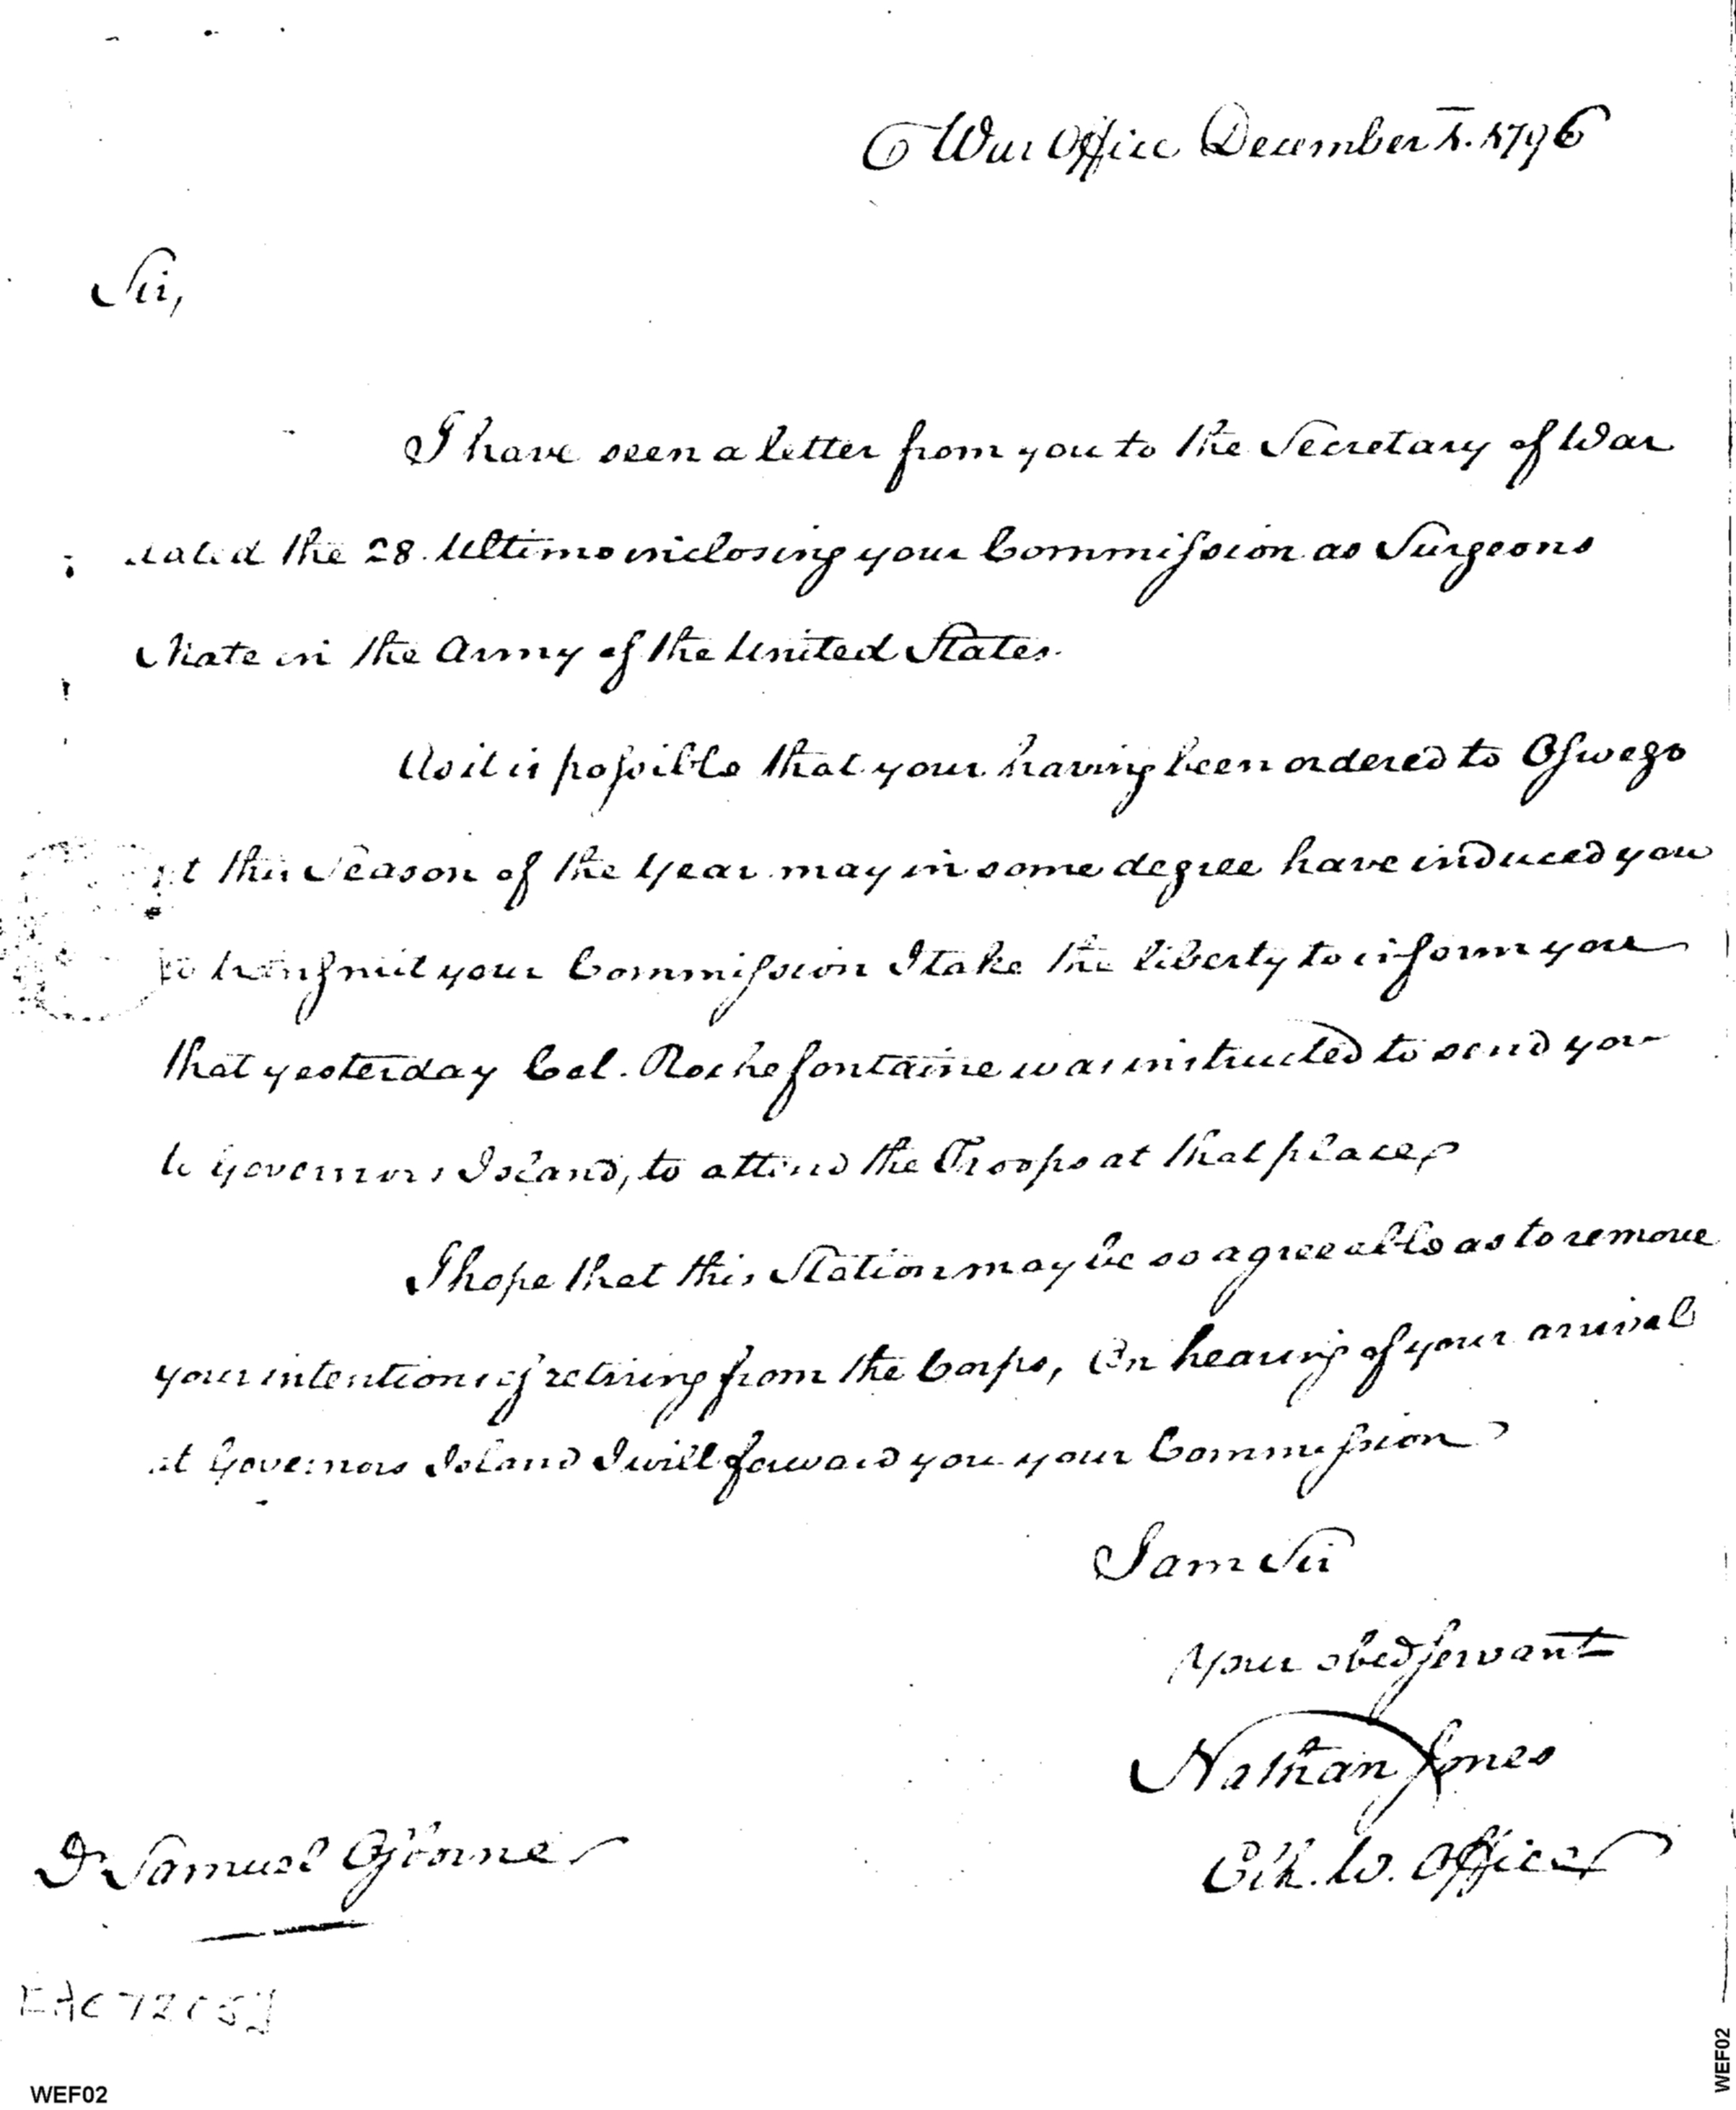 War Office December 1. 1796
Sir,
I have seen a letter from you to the Secretary of War
dated the 28. Ultimo inclosing your Commission as Surgeons
Mate in the Army of the United States.
As it is possible that your having been ordered to Oswego
at this Season of the Year may in some degree have induced you
to transmit your Commission I take the liberty to inform you
that yesterday Col. Rochefontaine was instructed to send you
to Governors Island, to attend the Troops at that place,
I hope that this Station may be so agreeable as to remove
your intentions of retiring from the Corps, On hearing of your arrival
at Governors Island I will forward you your Commission
I am Sir
Your obed servant
Nathan Jones
Clk. W. Office
Dr Samuel Osborne
WEF02
WEF02